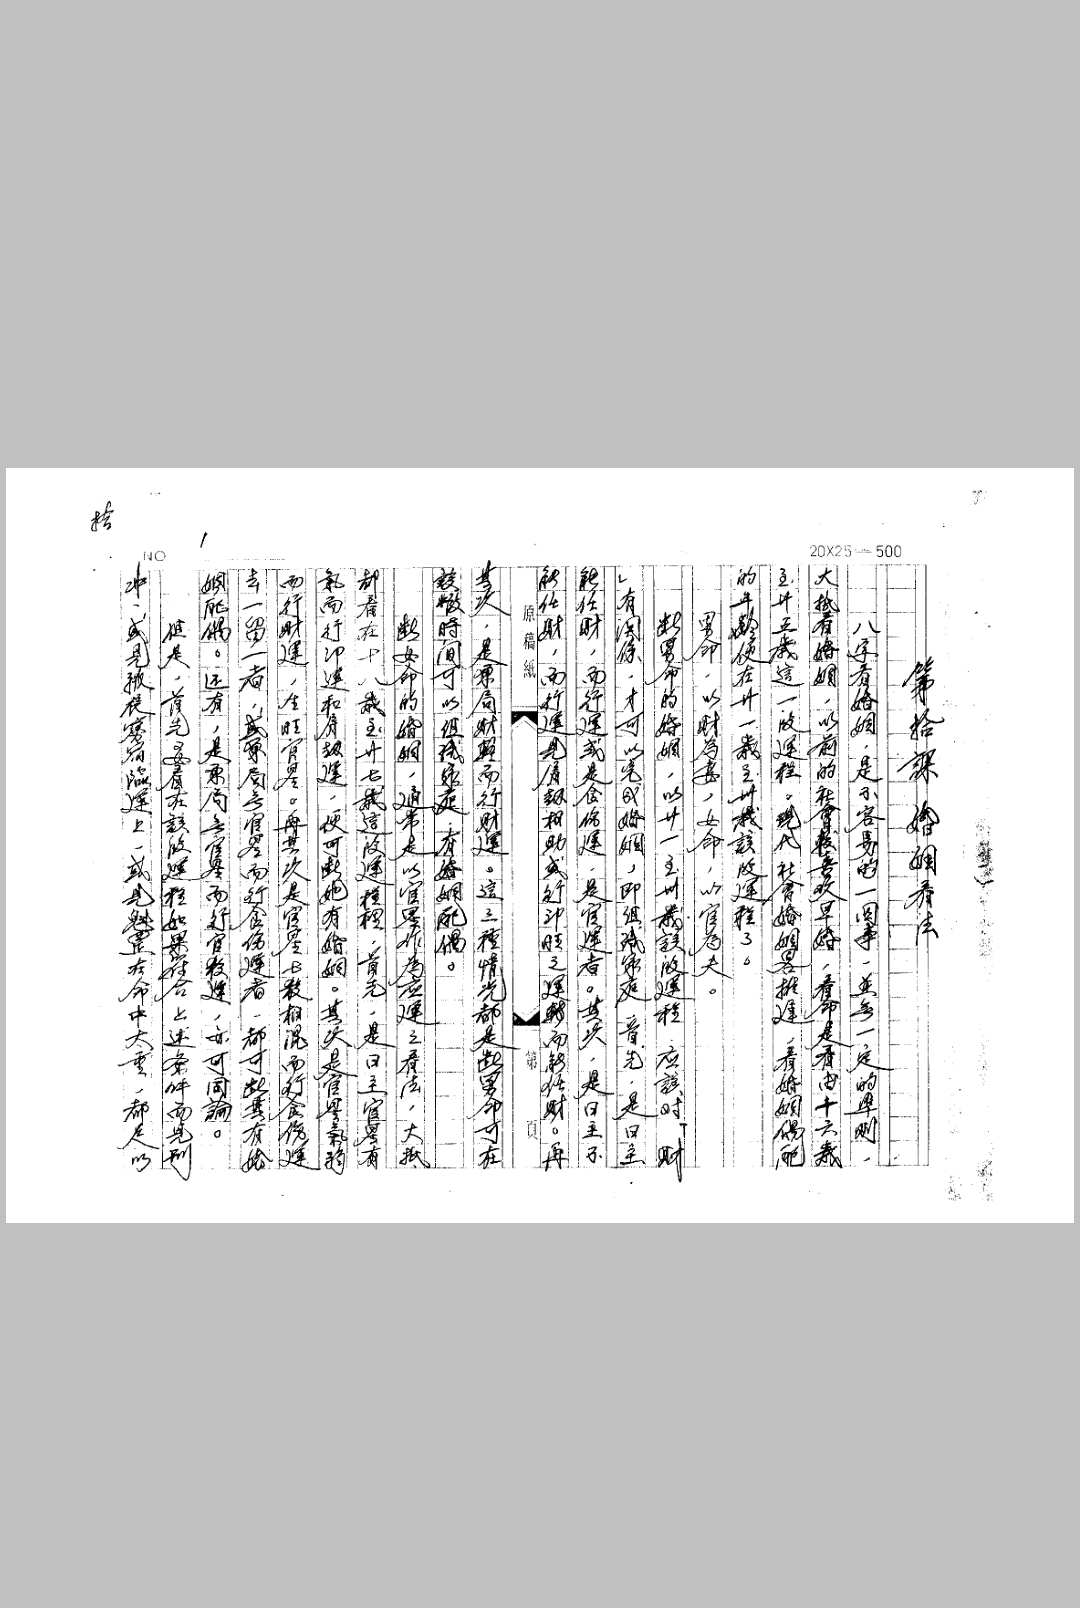 拾
1
NO
20X25＝500
第拾課 婚姻看法
八字看婚姻，是不容易的一回事，並無一定的準則，
大抵看婚姻，以前的社會較喜歡早婚，看命是看由十六歲
至廿五歲這一段運程。現代社會婚姻略推遲，看婚姻偶配
的年齡便在廿一歲至卅歲該段運程了。
男命，以財為妻，女命，以官為夫。
斷男命的婚姻，以廿一至卅歲該段運程 应該对「財
」有関係，才可以完成婚姻，即组織家庭 首先，是日主
能任財，而行運或是食傷運，是官運者。其次，是日主不
能任財，而行運見肩劫相助或行印旺之運轉而能任財。再
其次，是原局財弱而行財運。這三種情况都是斷男命可在
該段時间可以组織家庭，有婚姻配偶。
原稿紙
第 頁
斷女命的婚姻，通常是以官星作為应運之看法，大抵
都看在十八歲至廿七歲這段運程裡，首先，是日主官星有
氣而行印運和肩劫運，便可斷她有婚姻。其次是官星氣弱
而行財運，生旺官星。再其次是官星七殺相混而行食傷運
去一留一者，或原局無官星而行食傷運者，都可斷其有婚
姻配偶。还有，是原局無官星而行官殺運，亦可同論。
但是，首先要看在該段運程如果符合上述条件而見刑
冲，或見孤辰寡宿臨運上，或見魁罡在命中太重，都足以